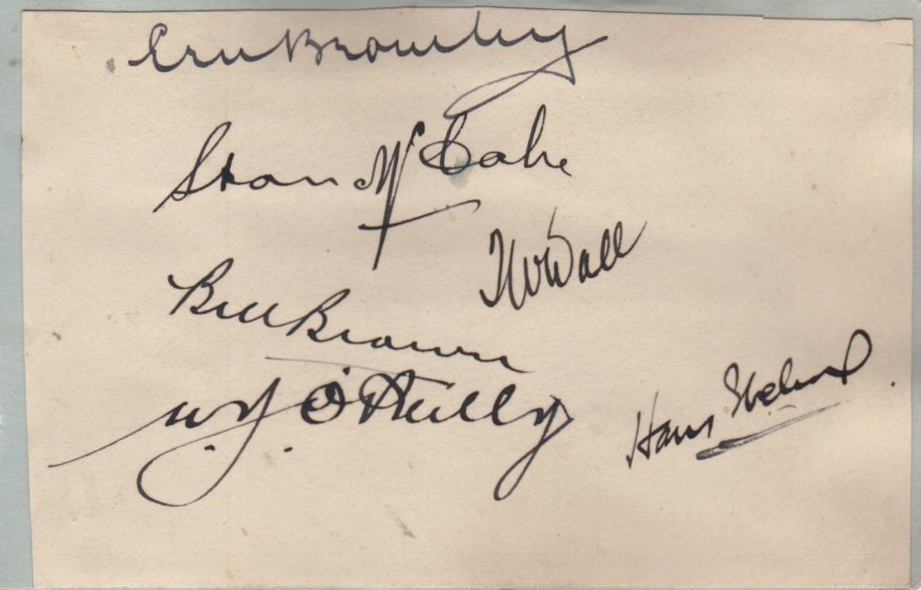 Ern Bromley
Stan McCabe
T W Wall
Bill Brown
W. J. O'Reilly
Hans Ebeling